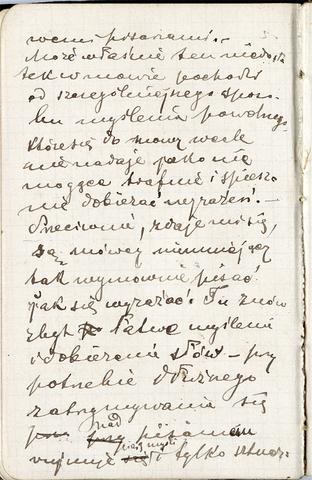 wemi pisaniami. –
Może właśnie ten niedosta
tek w mowie pochodzi
od szczególniejszego sposo-
bu myślenia powolnego,
które się do mowy wcale
nie nadaje jako nie
mogące trafnie i spiesz-
nie dobierać wyrażeń. –
Przeciwnie, zdaje mi się,
są mówcy nieumiejący
tak wymownie pisać
jak się wyrażać. Tu znów
zbyt łatwe myślenie
i dobieranie słów – przy
potrzebie dłuższego
zatrzymywania się
nad pisaniem
myśli i tylko